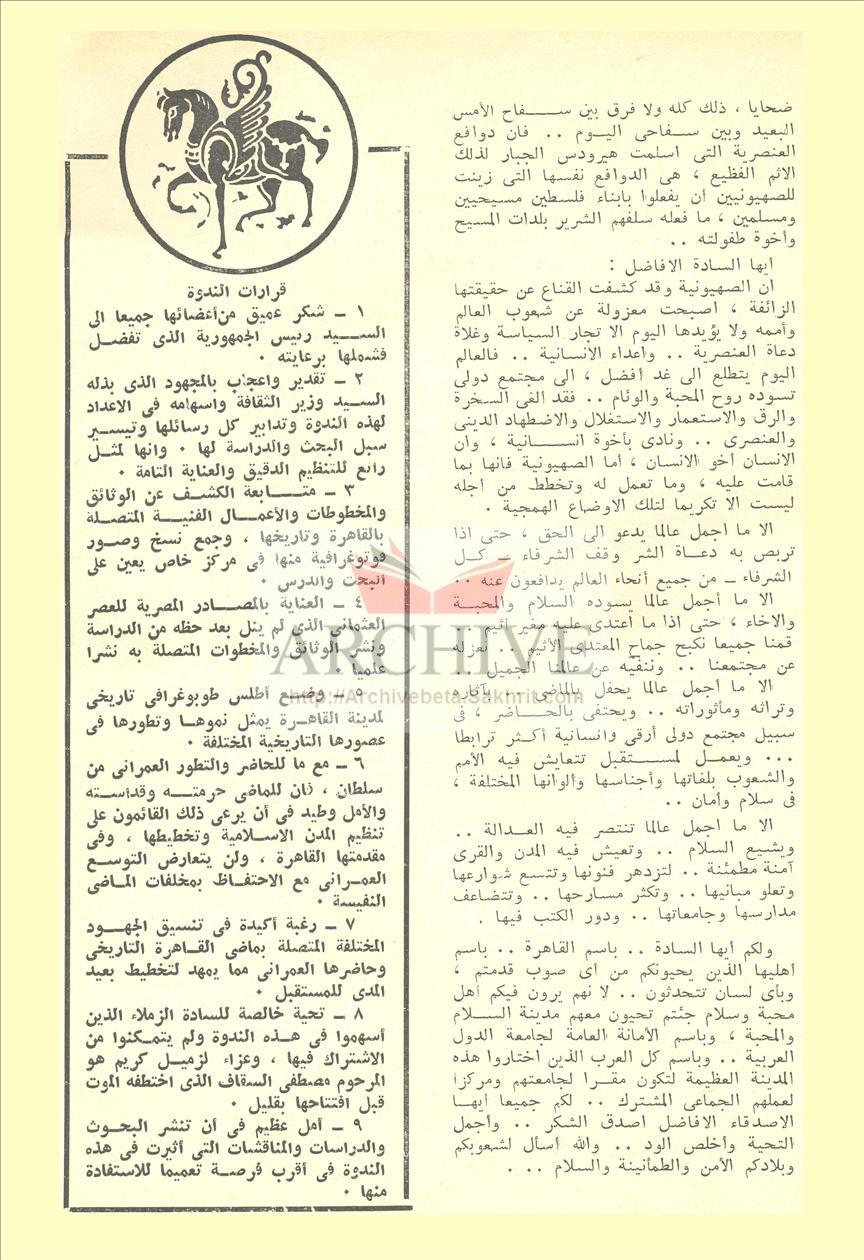 ضحايا ، ذلك كله ولا فرق بين سفاح الأمس
البعيد وبين سفاحى اليوم .. فان دوافع
العنصرية التى اسلمت هيرودس الجبار لذلك
الاثم الفظيع ، هى الدوافع نفسها التى زينت
للصهيونيين أن يفعلوا بابناء فلسطين مسيحيين
ومسلمين ، ما فعله سلفهم الشرير بلدات المسيح
وأخوة طفولته ..
أيها السادة الافاضل :
ان الصهيونية وقد كشفت القناع عن حقيقتها
الزائفة ، اصبحت معزولة عن شعوب العالم
وأممه ولا يؤيدها اليوم الا تجار السياسة وغلاة
دعاة العنصرية .. وأعداء الانسانية .. فالعالم
اليوم يتطلع الى غد أفضل ، الى مجتمع دولى
تسوده روح المحبة والوئام .. فقد الغى السخرة
والرق والاستعمار والاستغلال والاضطهاد الدينى
والعنصرى .. ونادى بأخوة انسانية ، وان
الانسان أخو الانسان ، أما الصهيونية فانها بما
قامت عليه ، وما تعمل له وتخطط من أجله
ليست الا تكريما لتلك الاوضاع الهمجية .
الا ما اجمل عالما يدعو الى الحق ، حتى اذا
تربص به دعاة الشر وقف الشرفاء ـ كل
الشرفاء ـ من جميع أنحاء العالم يدافعون عنه ..
الا ما أجمل عالما يسوده السلام والمحبة
والاخاء ، حتى اذا ما اعتدى عليه مغير اثيم ..
قمنا جميعا نكبح جماح المعتدى الأثيم .. نعزله
عن مجتمعنا .. وننفيه عن عالمنا الجميل ..
الا ما أجمل عالما يحفل بالماضى .. بآثاره
وتراثه ومأثوراته .. ويحتفى بالحاضر ، فى
سبيل مجتمع دولى أرقى وانسانية أكثر ترابطا
... ويعمل لمستقبل تتعايش فيه الأمم
والشعوب بلغاتها وأجناسها والوانها المختلفة ،
فى سلام وأمان ..
الا ما اجمل عالما تنتصر فيه العدالة ..
ويشيع السلام .. وتعيش فيه المدن والقرى
آمنة مطمئنة .. لتزدهر فنونها وتتسع شوارعها
وتعلو مبانيها .. وتكثر مسارحها .. وتتضاعف
مدارسها وجامعاتها .. ودور الكتب فيها .
ولكم أيها السادة .. باسم القاهرة .. باسم
أهليها الذين يحيونكم من أى صوب قدمتم ،
وبأى لسان تتحدثون .. لا نهم يرون فيكم أهل
محبة وسلام جئتم تحيون معهم مدينة السلام
والمحبة ، وباسم الأمانة العامة لجامعة الدول
العربية .. وباسم كل العرب الذين اختاروا هذه
المدينة العظيمة لتكون مقرا لجامعتهم ومركزا
لعملهم الجماعى المشترك .. لكم جميعا أيها
الاصدقاء الافاضل أصدق الشكر .. وأجمل
التحية وأخلص الود .. والله أسأل لشعوبكم
وبلادكم الأمن والطمأنينة والسلام ...
قرارات الندوة
١ ـ شكر عميق من أعضائها جميعا الى
السيد رئيس الجمهورية الذى تفضل
فشملها برعايته .
٢ ـ تقدير واعجاب بالمجهود الذى بذله
السيد وزير الثقافة واسهامه فى الاعداد
لهذه الندوة وتدابير كل رسائلها وتيسير
سبل البحث والدراسة لها . وانها لمثل
رائع للتنظيم الدقيق والعناية التامة .
٣ ـ متابعة الكشف عن الوثائق
والمخطوطات والأعمال الفنية المتصلة
بالقاهرة وتاريخها ، وجمع نسخ وصور
فوتوغرافية منها فى مركز خاص يعين على
البحث والدرس .
٤ ـ العناية بالمصادر المصرية للعصر
العثمانى الذى لم ينل بعد حظه من الدراسة
ونشر الوثائق والمخطوات المتصلة به نشرا
علميا .
٥ ـ وضع أطلس طوبوغرافى تاريخى
لمدينة القاهرة يمثل نموها وتطورها فى
عصورها التاريخية المختلفة .
٦ ـ مع ما للحاضر والتطور العمرانى من
سلطان ، فان للماضى حرمته وقداسته
والأمل وطيد فى أن يرعى ذلك القائمون على
تنظيم المدن الاسلامية وتخطيطها ، وفى
مقدمتها القاهرة ، ولن يتعارض التوسع
العمرانى مع الاحتفاظ بمخلفات الماضى
النفيسة .
٧ ـ رغبة أكيدة فى تنسيق الجهود
المختلفة المتصلة بماضى القاهرة التاريخى
وحاضرها العمرانى مما يمهد لتخطيط بعيد
المدى للمستقبل .
٨ ـ تحية خالصة للسادة الزملاء الذين
أسهموا فى هذه الندوة ولم يتمكنوا من
الاشتراك فيها ، وعزاء لزميل كريم هو
المرحوم مصطفى السقاف الذى اختطفه الموت
قبل افتتاحها بقليل .
٩ ـ أمل عظيم فى أن تنشر البحوث
والدراسات والمناقشات التى أثيرت فى هذه
الندوة فى أقرب فرصة تعميما للاستفادة
منها .
ARCHIVE
http://Archivebeta.Sakhrit.com